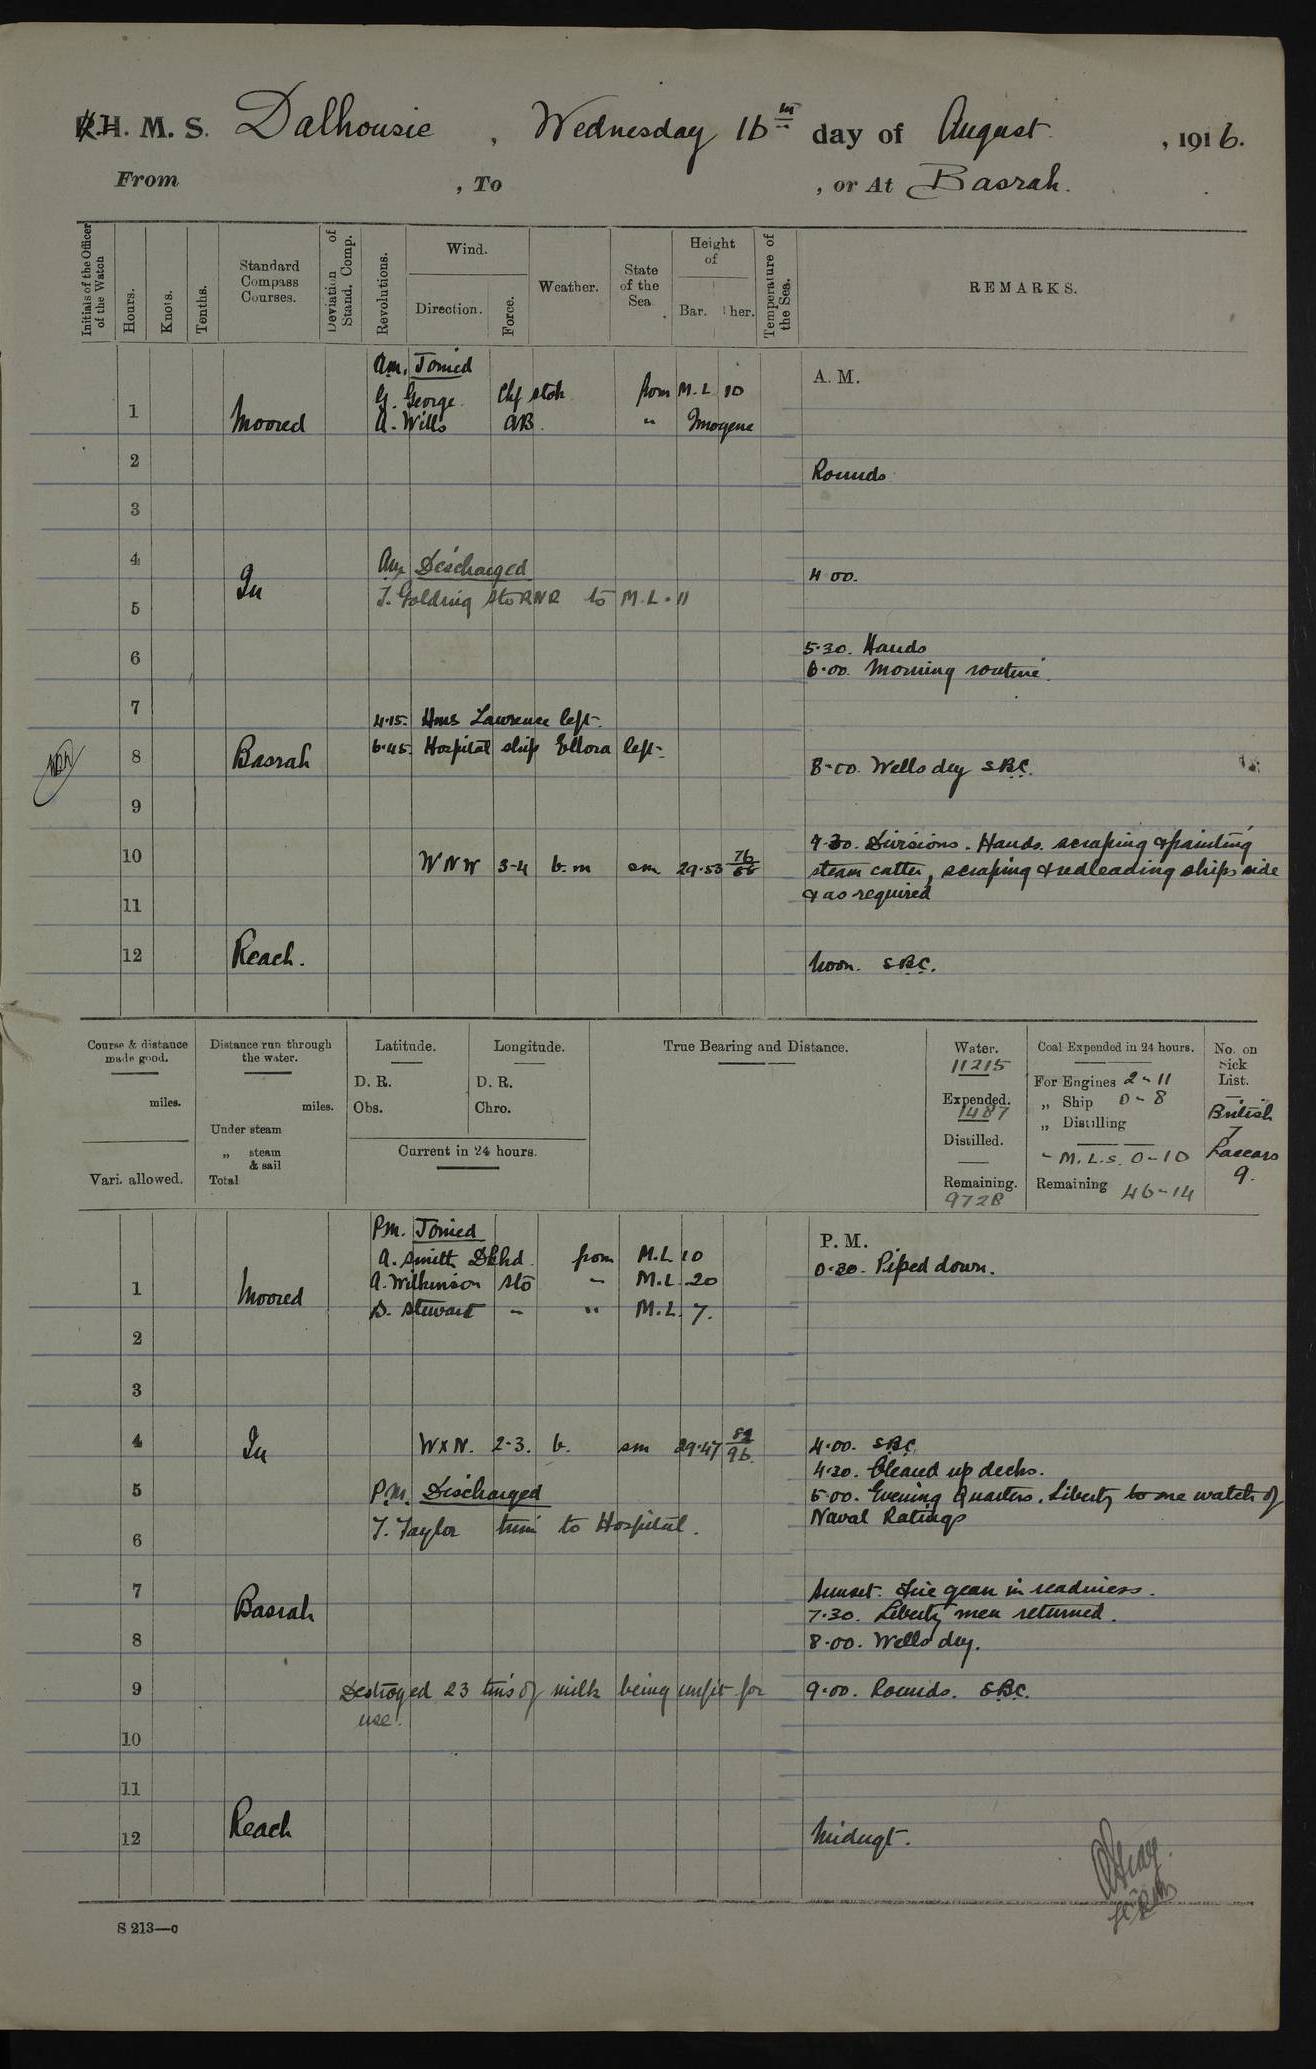 H. M. S. Dalhousie, Wednesday 16th day of August, 1916.
From , To , or At Basrah.
Initials of the Officer of the Watch
Hours.
Knots.
Tenths.
Standard Compass Courses.
Deviation of Stand. Comp.
Revolutions.
Wind.
Direction.
Force.
Weather.
State of the Sea
Height of
Bar.
ther.
Temperature of the Sea.
REMARKS.
A. M.
Am. Joined
G. George Chf stok from M.L 10
1 Moored A. Wills AB. " Imogene
2 Rounds
3
4 Am Discharged
In 4 00.
5 T. Golding Sto RNR to M.L. 11
5.30. Hands
6 6.00. Morning routine.
7
4.15. Hms Lawrence left.
8 Basrah 6.45. Hospital ship Ellora left.
8.00. Wells dry S.B.C.
9
9.30. Divisions. Hands. scraping & painting
10 WNW 3-4 b.m sm 29.53 76/88 steam cutter, scraping & redleading ships side
11 & as required
12 Reach. Noon. S.B.C.
Course & distance made good.
miles.
Vari. allowed.
Distance run through the water.
miles.
Under steam
„ steam & sail
Total
Latitude.
D. R.
Obs.
Longitude.
D. R.
Chro.
Current in 24 hours.
True Bearing and Distance.
Water.
11215
Expended.
1487
Distilled.
Remaining.
9728
Coal Expended in 24 hours.
For Engines 2-11
„ Ship 0-8
„ Distilling
- M.L.s. 0-10
Remaining 46-14
No. on Sick List.
British
7
Lascars
9.
P. M.
Pm. Joined
A. Smith Dkhd. from M.L 10 0.30. Piped down.
1 Moored A. Wilkinson sto " M.L. 20
D. Stewart - " M.L. 7.
2
3
4 In WxN. 2-3. b. sm 29.47 82/96 4.00. S.B.C
4.30. Cleared up decks.
5 P.M. Discharged 5.00. Evening Quarters. Liberty to one watch of
Naval Ratings
6 T. Taylor trim to Hospital.
7 Sunset. Fire gear in readiness.
Basrah 7.30. Liberty men returned.
8 8.00. Wells dry.
9 Destroyed 23 tins of milk being unfit for 9.00. Rounds. S.B.C.
use.
10
11
12 Reach Midngt.
S 213—c